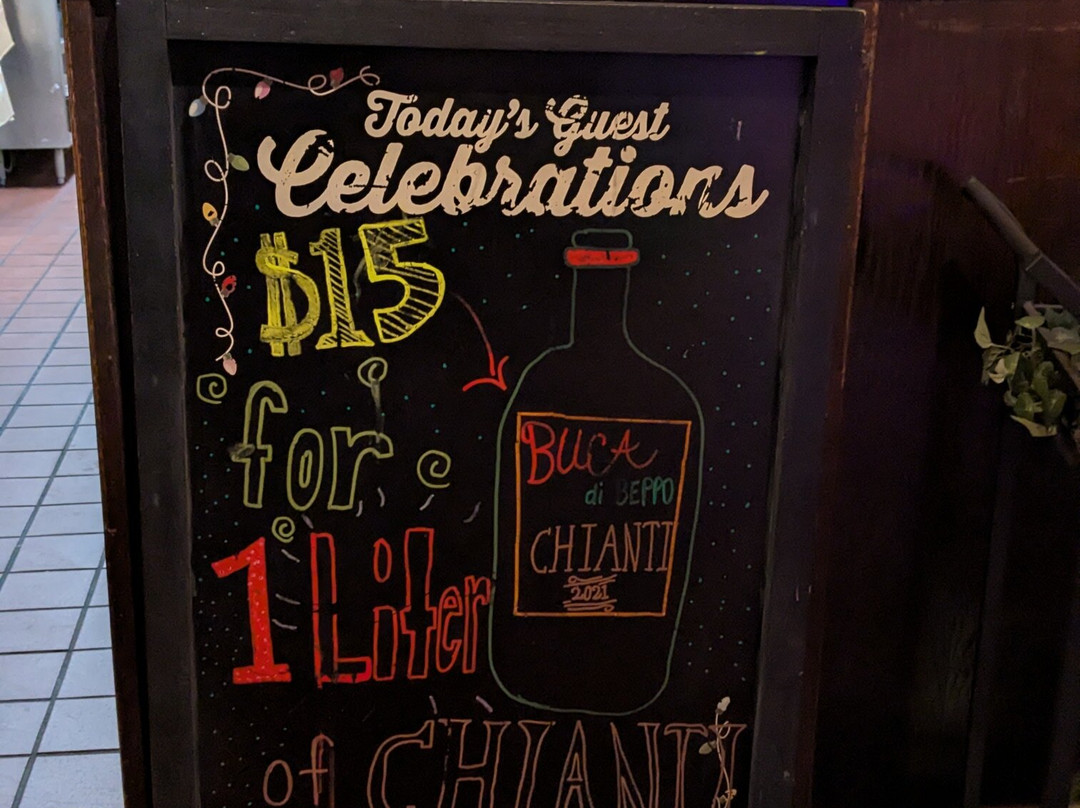 Today's Guest
Celebrations
$15
for
1 Liter
of CHIANTI
BUCA
di BEPPO
CHIANTI
2021